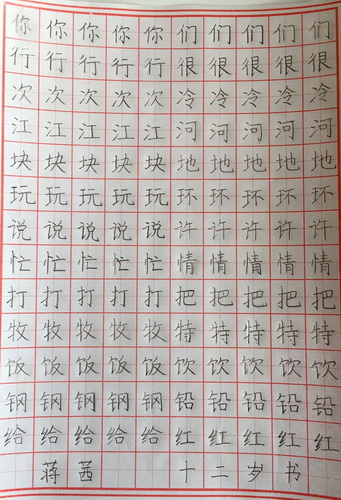 你你你你你们们们们们
行行行行行很很很很很
次次次次次冷冷冷冷冷
江江江江江河河河河河
块块块块块地地地地地
玩玩玩玩玩环环环环环
说说说说说许许许许许
忙忙忙忙忙情情情情情
打打打打打把把把把把
牧牧牧牧牧特特特特特
饭饭饭饭饭饮饮饮饮饮
钢钢钢钢钢铅铅铅铅铅
给给给给给红红红红红
蒋茜 十二岁书